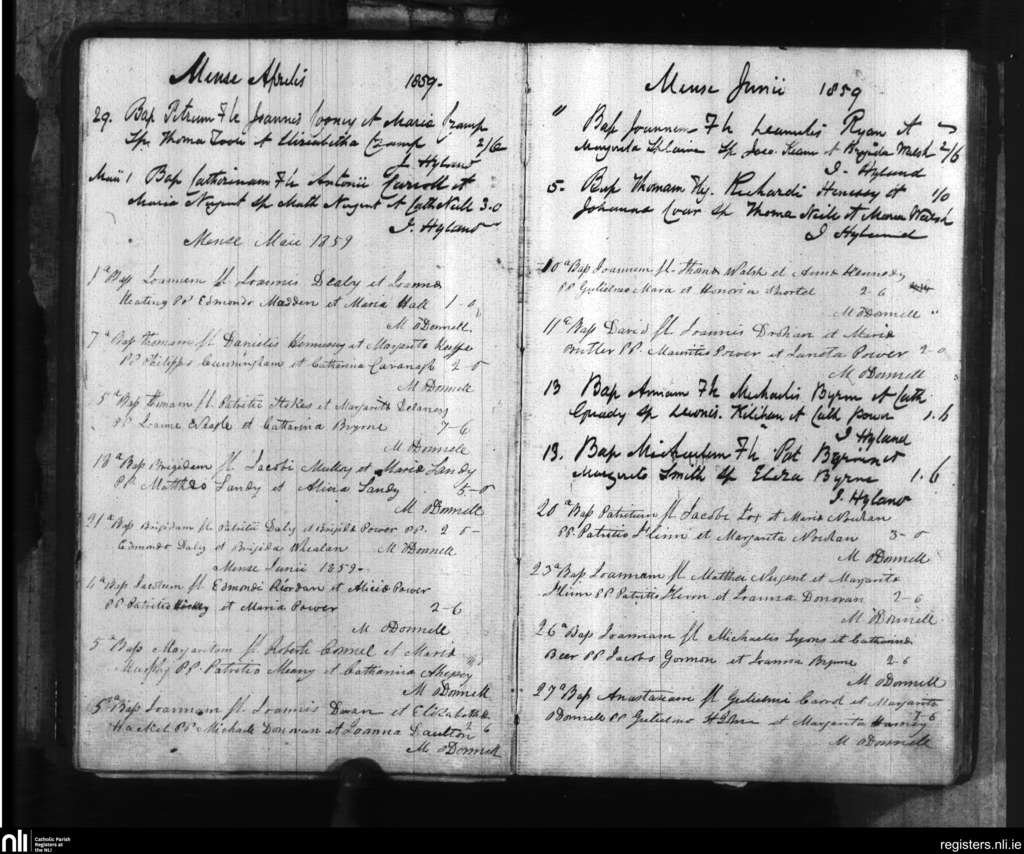 Mense Aprilis 1859.
29. Bap Petrum F h Joannis Cooney et Maria Cramp
Sp. Thoma Toole et Elizabetha Cramp 2/6
J Hyland
Maii 1 Bap Catherinam F h Antonii Carroll et
Maria Nugent Sp Matt Nugent et Cath Neill 3-0
J. Hyland
Mense Maii 1859
1a Bap Joannem fl Joannis Dealy et Joanna
Keating PP Edmondo Madden et Maria Hall 1-0
M ODonnell
7a Bap Thomam fl Danielis Hennessy et Margarita Keeffe
PP Philippo Cunningham et Catharina Cavanagh 2-0
M ODonnell
5a Bap Thomam fl Patritii Stokes et Margarita Delaney
PP et Catharina Byrne 7-6
M ODonnell
18a Bap Brigidam fl Jacobi Mulloy et Maria Landy
PP Mattheo Landy et Alicia Landy 5-0
M ODonnell
21a Bap Brigidam fl Patritii Daly et Brigida Power PP. 2 6-
Edmondo Daly et Brigida Whealan M ODonnell
Mense Junii 1859-
4a Bap Jacobum fl Edmondi Riordan et Alicia Power
PP Patritio et Maria Power 2-6
M ODonnell
5a Bap Margaritam fl Roberti Connel et Maria
Murphy PP Patritio Meany et Catharina
M ODonnell
5a Bap Joannam fl Joannis Dwan et Elizabetha
Hacket PP Michaele Donovan et Joanna Daulton 2 6
M ODonnell
Mense Junii 1859
" Bap Joannem F h Ryan et
Margarita Sp Jaco. Keane et Brigida Walsh 2/6
J. Hyland
5. Bap Thomam Richardi Henessy et 1/0
Johanna Sp Thoma Neile et Maria Walsh
J Hyland
10a Bap Joannem fl Thoma Walsh et Anna Kennedy
PP Gulielmo Mara et Honoria Shortel 2-6
M ODonnell "
11a Bap David fl Joannis Drohan et Maria
Butler PP. Mauritio Power et Power 2-0
M ODonnell
13 Bap Annam F h Michaelis Byrne et Cath
Grady Sp et Cath Power 1.6
J Hyland
13. Bap Michaelem F h Pat Byrne et
Margarita Smith Sp Eliza Byrne 1.6
J. Hyland
20a Bap Patritium fl Jacobi Fox et Maria
PP Patritio Flinn et Margarita 3-0
M ODonnell
23a Bap Joannam fl Matthei Nugent et Margarita
Flinn PP Patritio Flinn et Joanna Donovan 2-6
M ODonnell
26a Bap Joannam fl Michaelis Lyons et Catharina
Beer PP Jacobo Gorman et Joanna Byrne 2-6
M ODonnell
27a Bap Anastasiam fl Gulielmi et Margarita
ODonnell PP Gulielmo et Margarita Harney 7 6
M ODonnell
nli Catholic Parish
Registers at
the NLI
registers.nli.ie